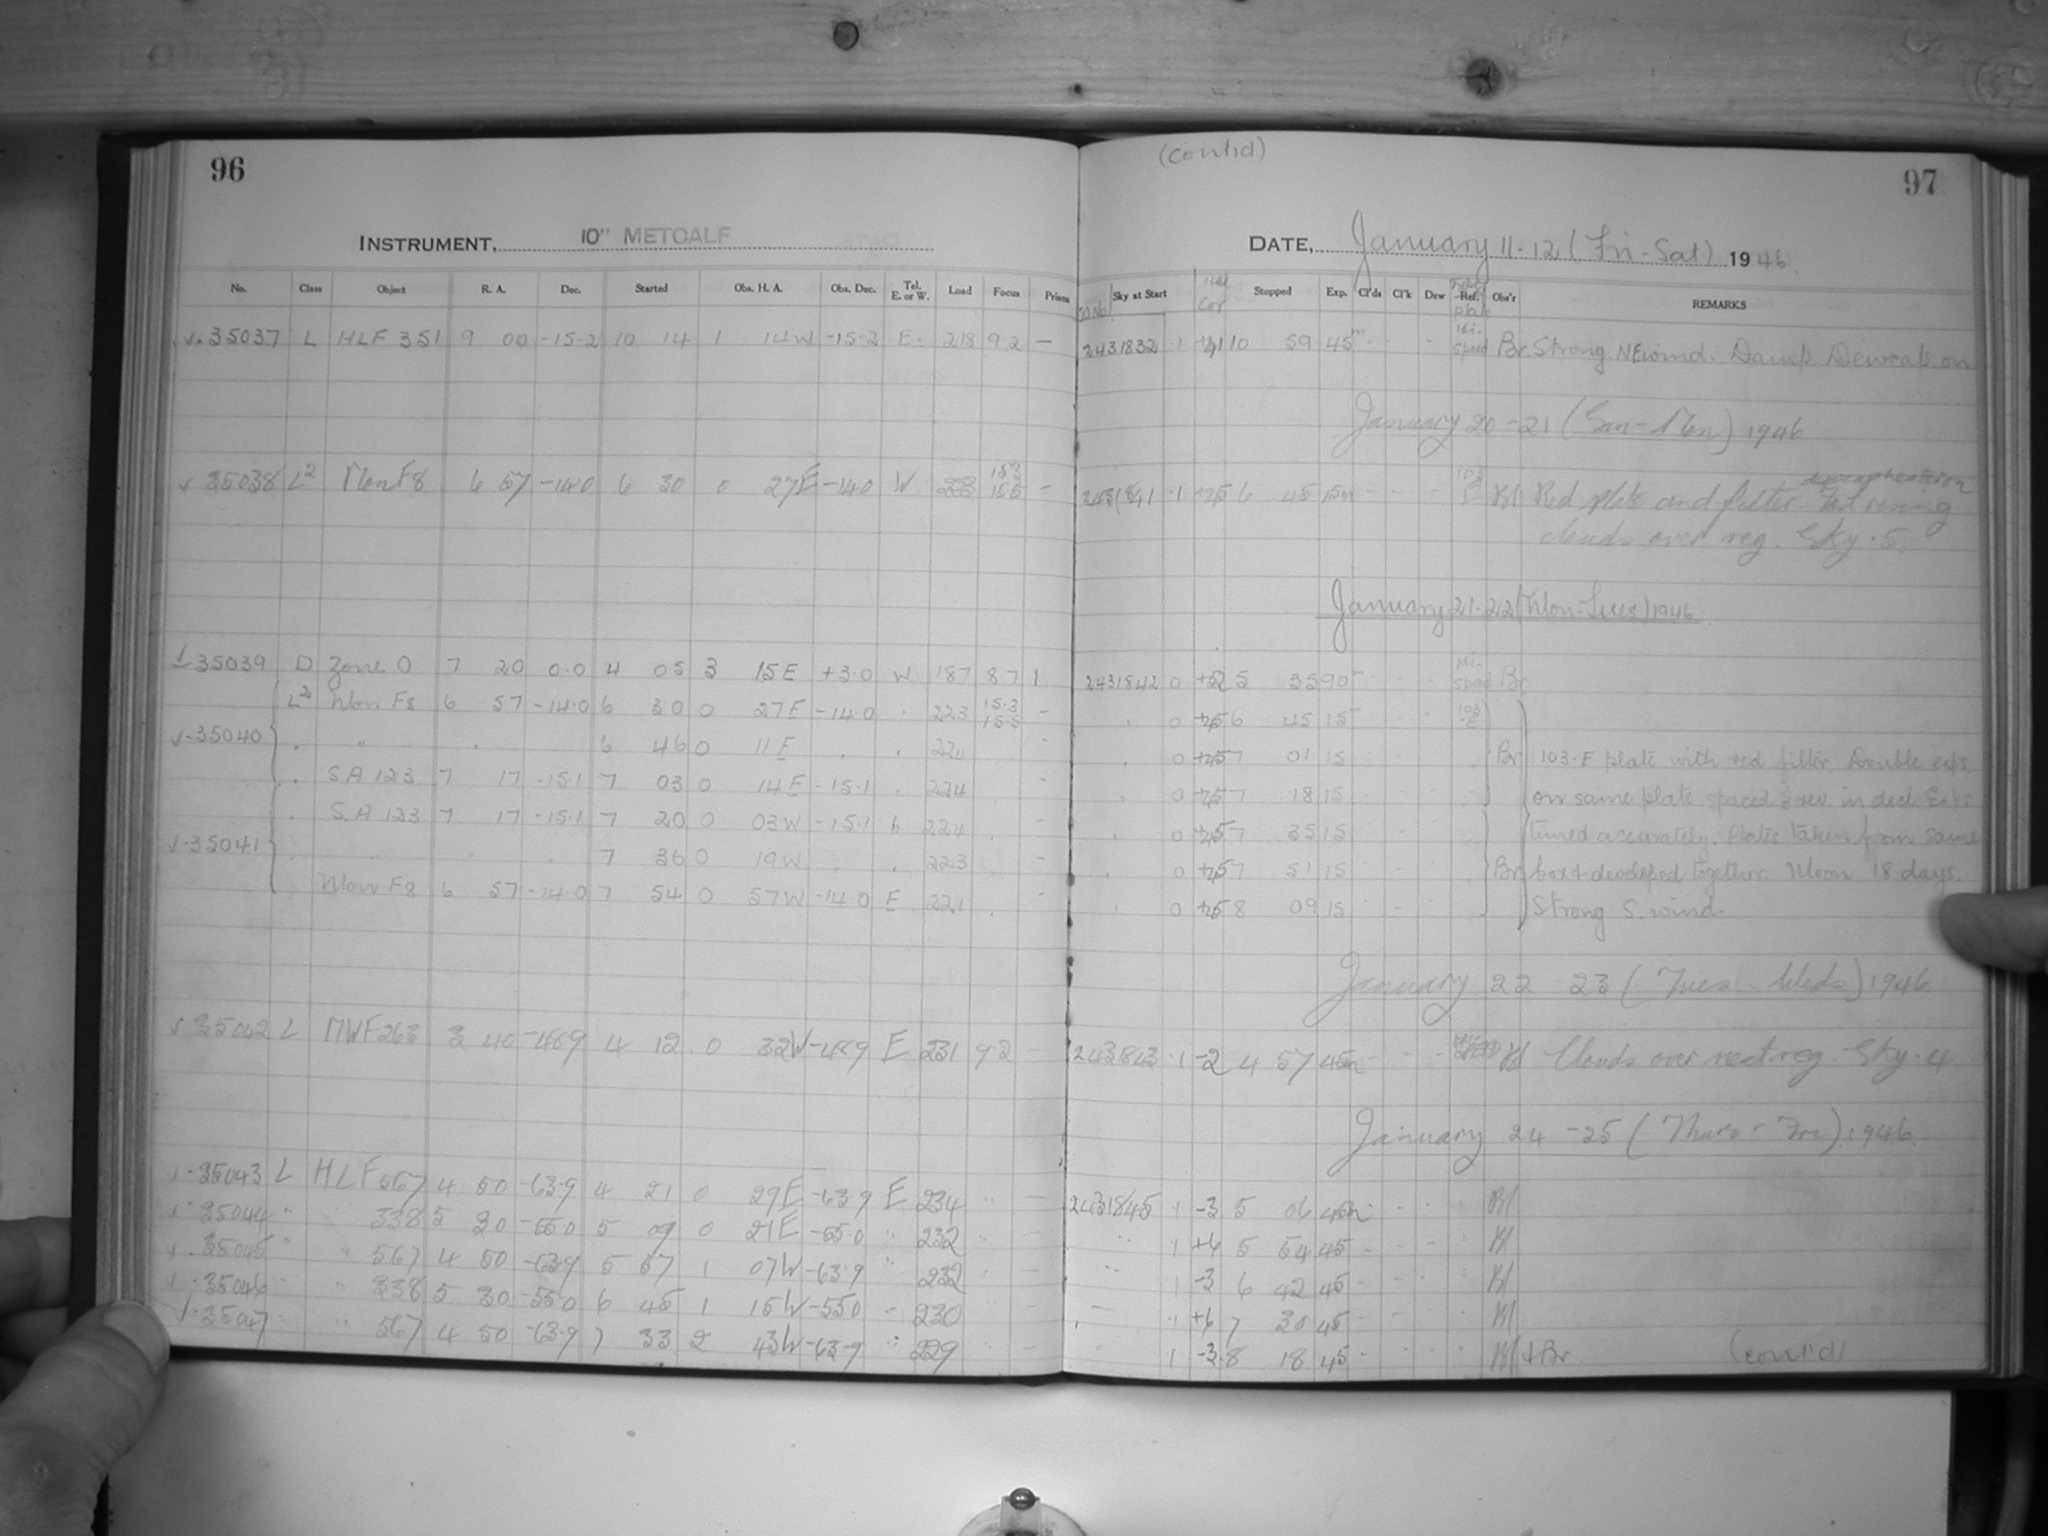 96
(contd)
97
INSTRUMENT, 10" METCALF
DATE, January 11-12 (Fri-Sat) 1946.
No. Class Object R. A. Dec. Started Obs. H. A. Obs. Dec. Tel. E. or W. Load Focus Prisms
Sky at Start Stopped Exp. Cl'ds Cl'k Dew Ref. Obs'r REMARKS
35037 L HLF 351 9 00 -15.2 10 14 1 14W -15.2 E. 218 9.2 - 2431832 1 10 59 45m - - - Br. Strong NE wind. Damp Dewcap on
January 20-21 (Sun-Mon) 1946
35038 L2 Mon F8 6 57 -14.0 6 30 0 27E -14.0 W 15.3 15.5 - 2431841 1 6 45 15m - - - Bl Red plate and filter. rising
clouds over reg. Sky .5.
January 21-22 (Mon-Tues) 1946
35039 D Zone 0 7 20 0.0 4 05 3 15E +3.0 W 187 8.7 1 2431842 0 5 35 90m - - - Br
L2 Mon F8 6 57 -14.0 6 30 0 27E -14.0 " 223 15.3 15.5 - " 0 6 45 15m - - - 103-E
35040 " " " 6 46 0 11E " " 221 - 0 7 01 15 - Br 103-E plate with red filter. Double exps.
" S.A 123 7 17 -15.1 7 03 0 14E -15.1 " 224 - " 0 7 18 15 - - on same plate spaced in decl. Exps
" S.A 123 7 17 -15.1 7 20 0 03W -15.1 224 - " 0 7 35 15 - - timed accurately. Plates taken from same
35041 " " " " 7 36 0 19W " 223 - " 0 7 51 15 - - Br box & developed together. Moon 18 days.
" Mon F8 6 57 -14.0 7 54 0 57W -14.0 E 221 - " 0 8 09 15 - - Strong S. wind.
January 22-23 (Tues-Weds) 1946
35042 L MWF 263 3 40 -48.9 4 12 0 32W -48.9 E 231 9.2 - 2431843 1 -2 4 57 45m - - - Bl Clouds over next reg. Sky .4
January 24-25 (Thurs-Fri) 1946.
35043 L HLF 567 4 50 -63.9 4 21 0 29E -63.9 E 234 " - 2431845 1 -3 5 06 45m - - Bl
35044 " " 338 5 30 -55.0 5 09 0 21E -55.0 " 232 " - " 1 +6 5 54 45 - - - Bl
35045 " " 567 4 50 -63.9 5 57 1 07W -63.9 " 232 " - " 1 -3 6 42 45 - - - Bl
35046 " " 338 5 30 -55.0 6 45 1 15W -55.0 " 230 " - " 1 +6 7 30 45 - - - Bl
35047 " " 567 4 50 -63.9 7 33 2 43W -63.9 " 229 " - " 1 -3 8 18 45 - - - Bl & Br
(contd)